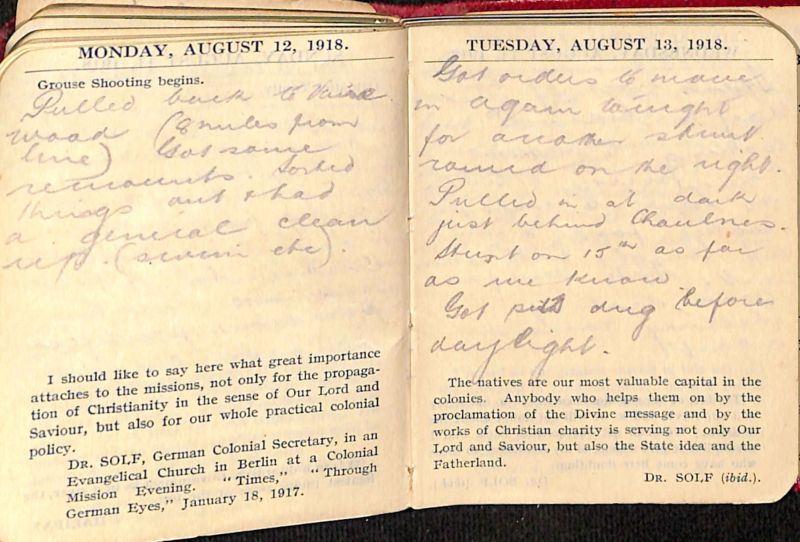 MONDAY, AUGUST 12, 1918.
Grouse Shooting begins.
Pulled back to
wood (8 miles from
line) Got some
remounts. Sorted
things out & had
a general clean
up. (swim etc).
I should like to say here what great importance
attaches to the missions, not only for the propaga-
tion of Christianity in the sense of Our Lord and
Saviour, but also for our whole practical colonial
policy.
DR. SOLF, German Colonial Secretary, in an
Evangelical Church in Berlin at a Colonial
Mission Evening. "Times," "Through
German Eyes," January 18, 1917.
TUESDAY, AUGUST 13, 1918.
Got orders to move
in again tonight
for another stunt
round on the right.
Pulled in at dark
just behind Chaulnes.
Stunt on 15th as far
as we know
Got pits dug before
daylight.
The natives are our most valuable capital in the
colonies. Anybody who helps them on by the
proclamation of the Divine message and by the
works of Christian charity is serving not only Our
Lord and Saviour, but also the State idea and the
Fatherland.
DR. SOLF (ibid.).